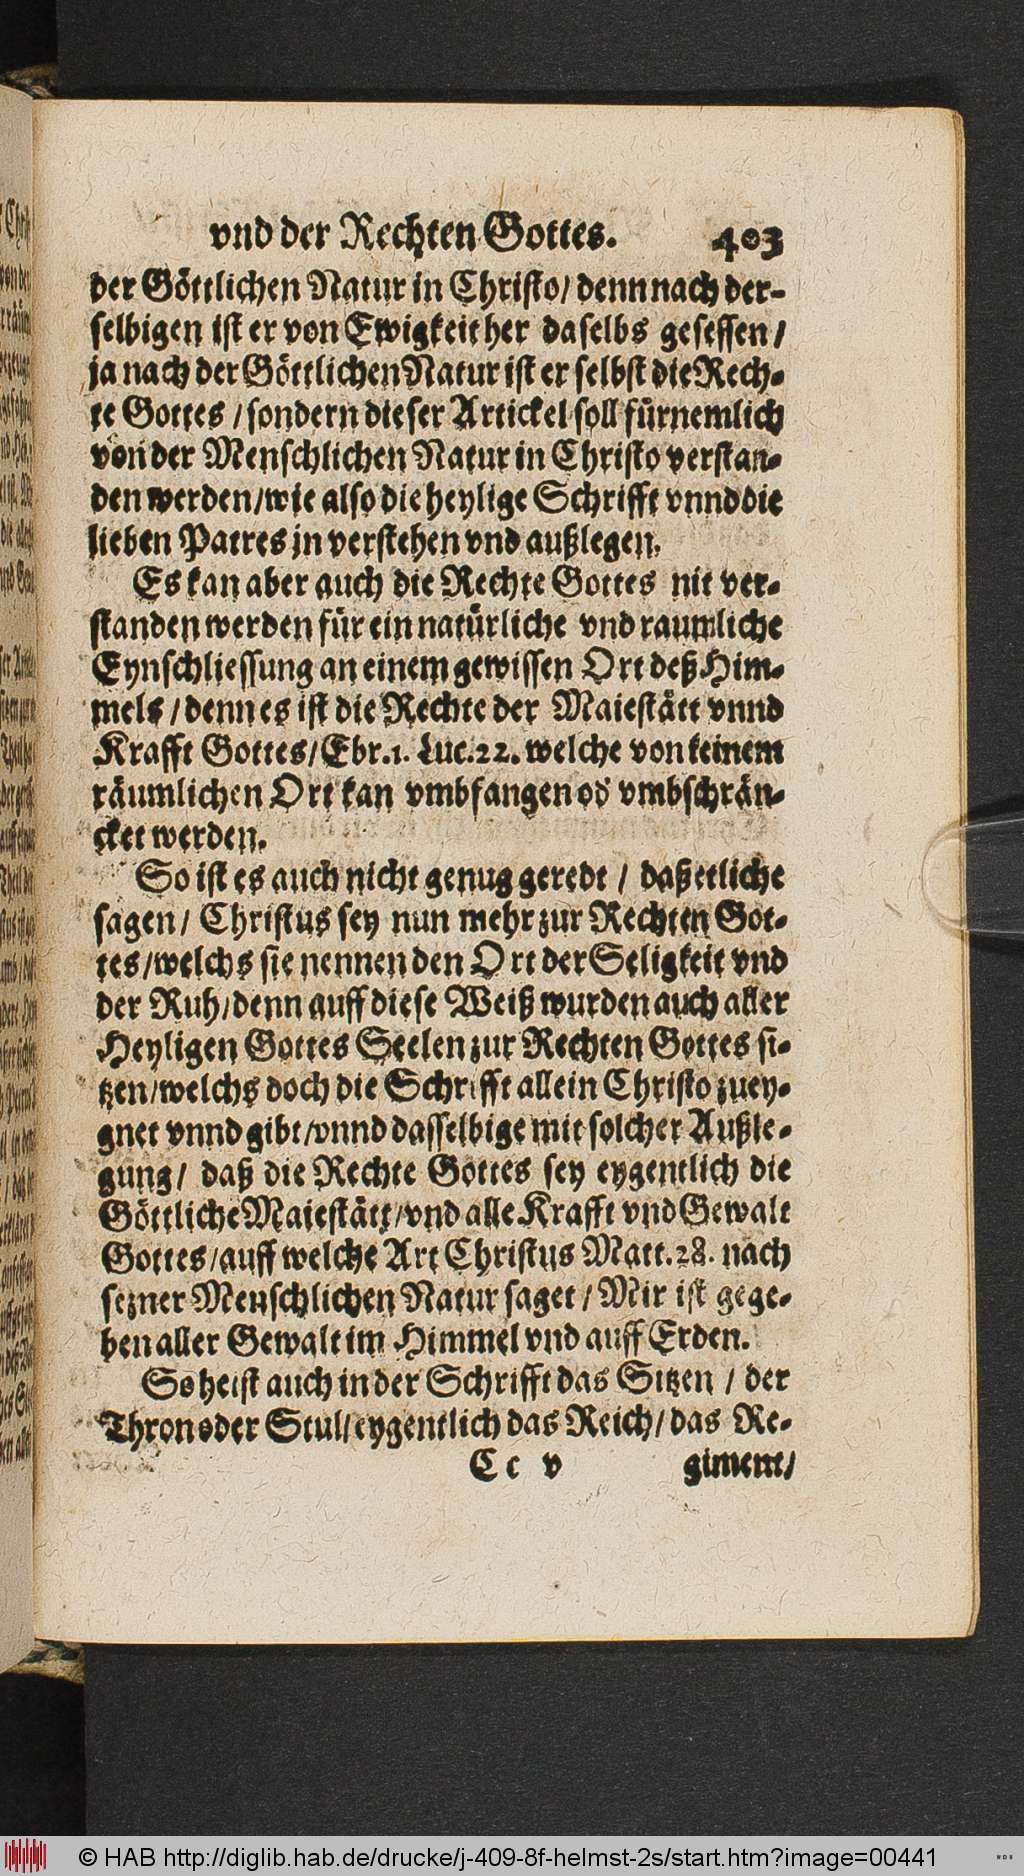 vnd der Rechten Gottes. 403
der Göttlichen Natur in Christo/ denn nach der-
selbigen ist er von Ewigkeit her daselbs gesessen/
ja nach der Göttlichen Natur ist er selbst die Rech-
te Gottes / sondern dieser Artickel soll fürnemlich
von der Menschlichen Natur in Christo verstan-
den werden/wie also die heylige Schrifft vnnd die
lieben Patres jn verstehen vnd außlegen.
Es kan aber auch die Rechte Gottes nit ver-
standen werden für ein natürliche vnd raumliche
Eynschliessung an einem gewissen Ort deß Him-
mels / denn es ist die Rechte der Maiestätt vnnd
Krafft Gottes/Ebr.1. Luc.22. welche von keinem
räumlichen Ort kan vmbfangen od' vmbschrän-
cket werden.
So ist es auch nicht genug geredt / daß etliche
sagen/ Christus sey nun mehr zur Rechten Got-
tes/welchs sie nennen den Ort der Seligkeit vnd
der Ruh/denn auff diese Weiß wurden auch aller
Heyligen Gottes Seelen zur Rechten Gottes si-
tzen/welchs doch die Schrifft allein Christo zuey-
gnet vnnd gibt/vnnd dasselbige mit solcher Außle-
gung/ daß die Rechte Gottes sey eygentlich die
Göttliche Maiestätt/vnd alle Krafft vnd Gewalt
Gottes/auff welche Art Christus Matt.28. nach
seiner Menschlichen Natur saget / Mir ist gege-
ben aller Gewalt im Himmel vnd auff Erden.
So heist auch in der Schrifft das Sitzen / der
Thron oder Stul/eygentlich das Reich/ das Re-
C c v giment/
© HAB http://diglib.hab.de/drucke/j-409-8f-helmst-2s/start.htm?image=00441